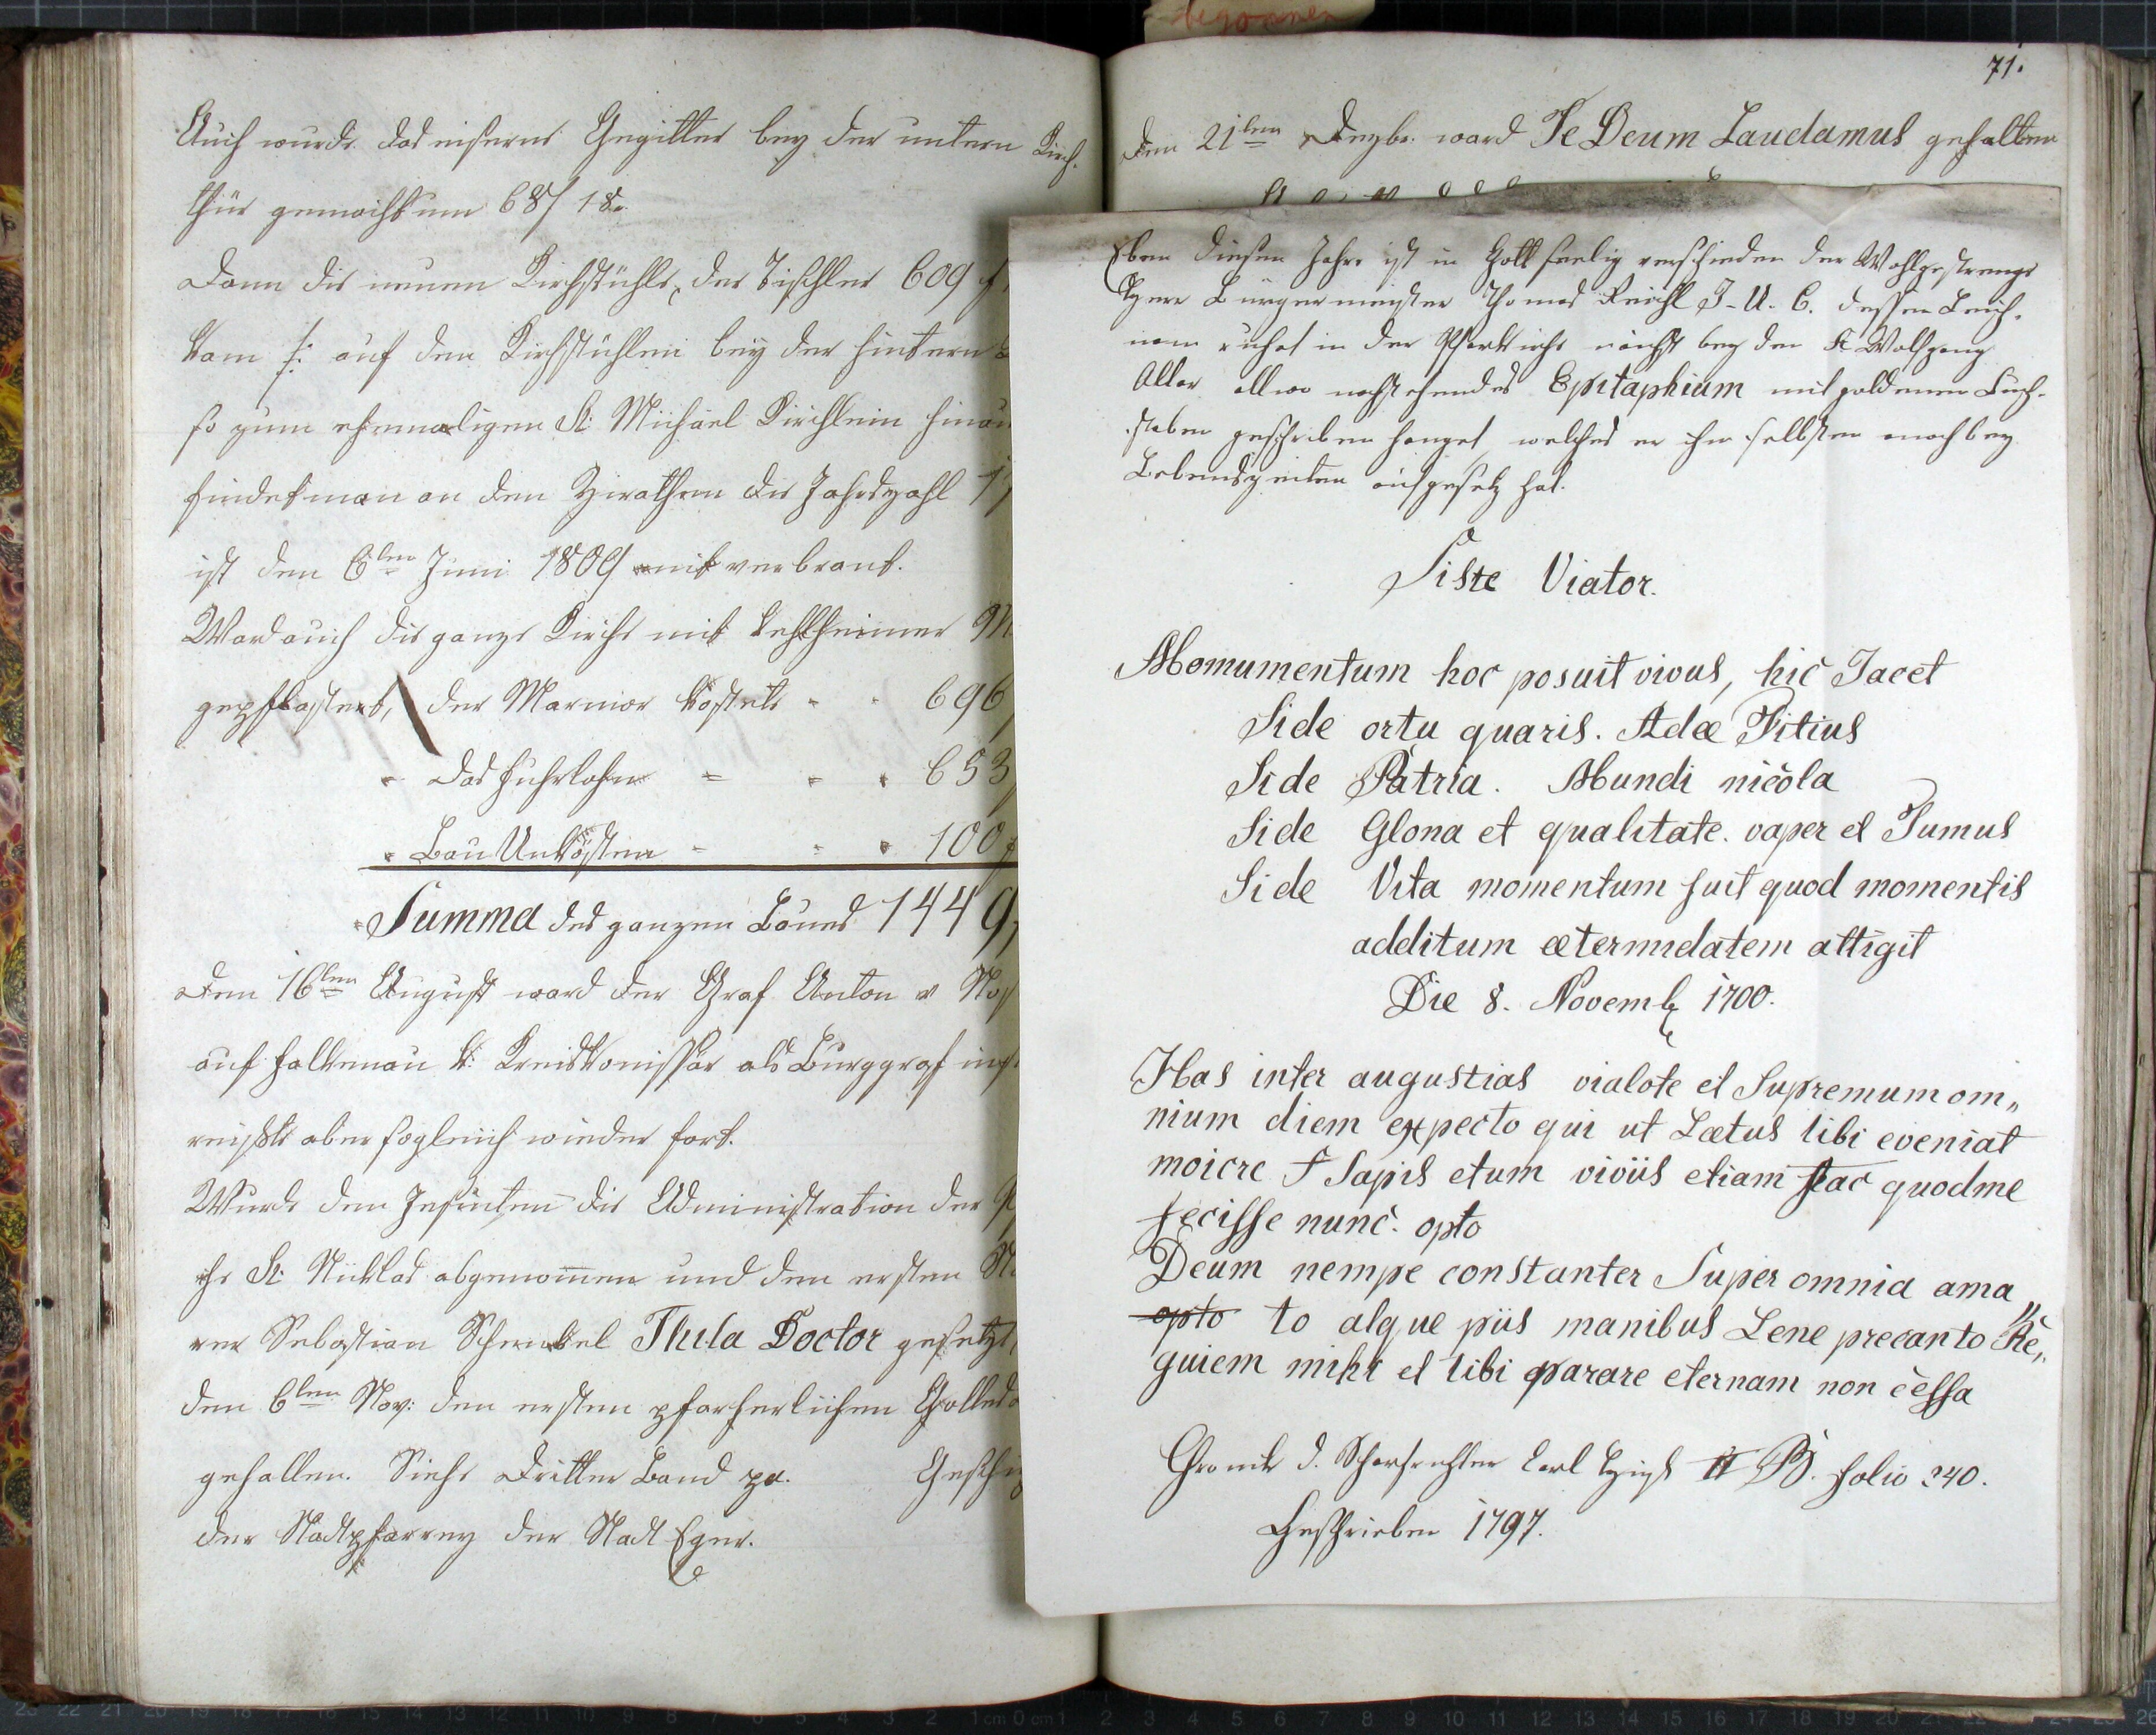 begonnen
Auch wurde das eiserne Gegitter bey der untern Kirch.
thür gemacht um 68f 18
Dann die neuen Kirchstühle, der Tischler 609 f
kam /: auf den Kirchstühlen bey der hintern
so zum ehemaligen St: Michael Kirchlein hinau
findet man an den Zirathen die Jahrszahl 17
ist den 6ten Juni 1809 mit verbrant.
Ward auch die ganze Kirche mit kehlheimer M
gepflastert, der Marmor kostete - - 696
- das Fuhrlohn = = - 653
- Bau Unkösten - = - 100 f
Summa des ganzen Baues 1449
Den 16ten August ward der Graf Anton v Nos
auf Falkenau k: Kreiskomissär als Burggraf ins
reißte aber sogleich wieder fort.
Wurde den Jesuiten die Administration der
che St: Niklas abgenomen und den ersten
rer Sebastian Schenkel Thila Doctor gesetzt
den 6ten Nov: den ersten pfarherlichen Gottesd
gehalten. Siehe dritter Band pa. Geschi
der Stadtpfarrey der Stadt Eger.
71.
Den 21ten Dezbr. ward Te Deum Laudamus gehalten
Eben diesen Jahre ist in Gott seelig verschieden der Wohlgestrenge
Herr Bürgermeister Thomas Reichl J. U. C. dessen Leich.
nam ruhet in der Pfarkirche nächst bey den St Wolfgang
Altar allwo nachstehendes Epitaphium mit goldenen Buch.
staben geschrieben hanget, welches er ihm selbsten noch bey
Lebenszeiten aufgesetz hat.
Siste Viator.
Momumentum hoc posuit vivus, hic Jacet
Side ortu quaris. Adæ Fitius
Side Patria. Mundi nicola
Side Glona et qualitate. vaper et Fumus
Side Vita momentum fuit quod momentis
additum æternidatem attigit
Die 8. Novemb 1700.
Has inter augustias vialote et Supremum om„
nium diem expecto qui ut Lætus tibi eveniat
moicre f Sapis etum viviis etiam fac quodme
fecisse nunc. opto
Deum nempe constanter Super omnia ama„
opto to alque piis manibus Lene precanto Re„
guiem mihi et tibi parare eternam non cessa
Chronik d. Scharfrichter Carl Huß II B. folio 240.
Geschrieben 1797.